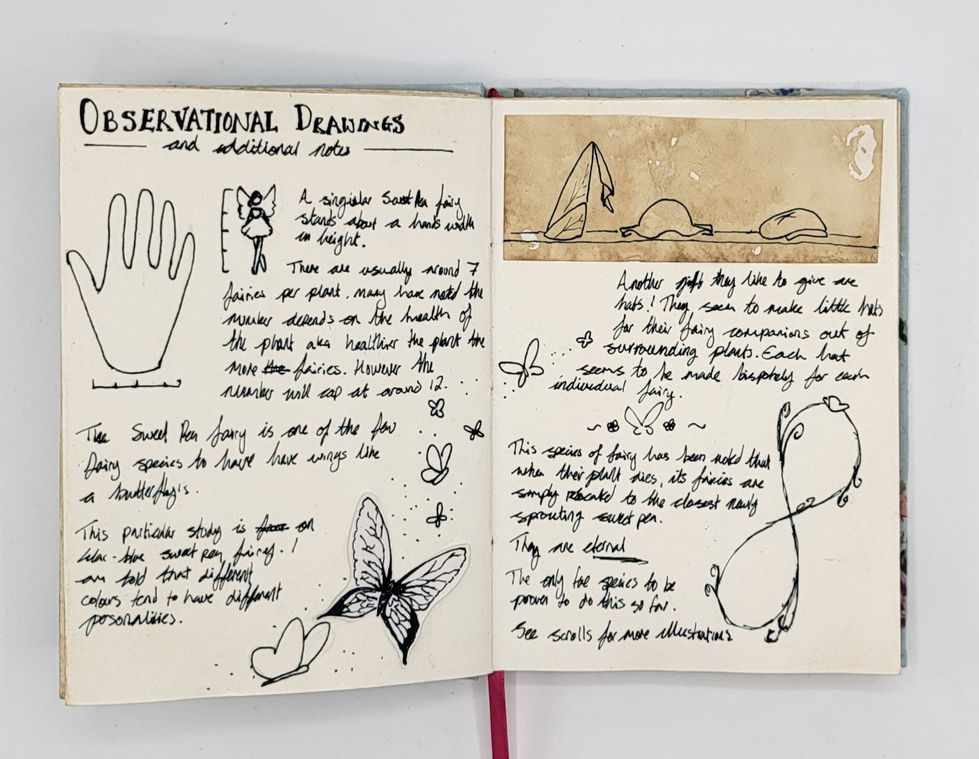 OBSERVATIONAL DRAWINGS
and additional notes
A singular Sweet Pea fairy
stands about a hands width
in height.
There are usually around 7
fairies per plant, many have noted the
number depends on the health of
the plant aka healthier the plant the
more the fairies. However the
number will cap at around 12.
The Sweet Pea fairy is one of the few
fairy species to have have wings like
a butterfly's.
This particular study is on
lilac-blue sweet pea fairies. I
am told that different
colours tend to have different
personalities.
Another gift they like to give are
hats! They seem to make little hats
for their fairy companions out of
surrounding plants. Each hat
seems to be made bispokely for each
individual fairy.
This species of fairy has been noted that
when their plant dies, its fairies are
simply relocate to the closest newly
sprouting sweet pea.
They are eternal
The only fae species to be
proven to do this so far.
See scrolls for more illustrations